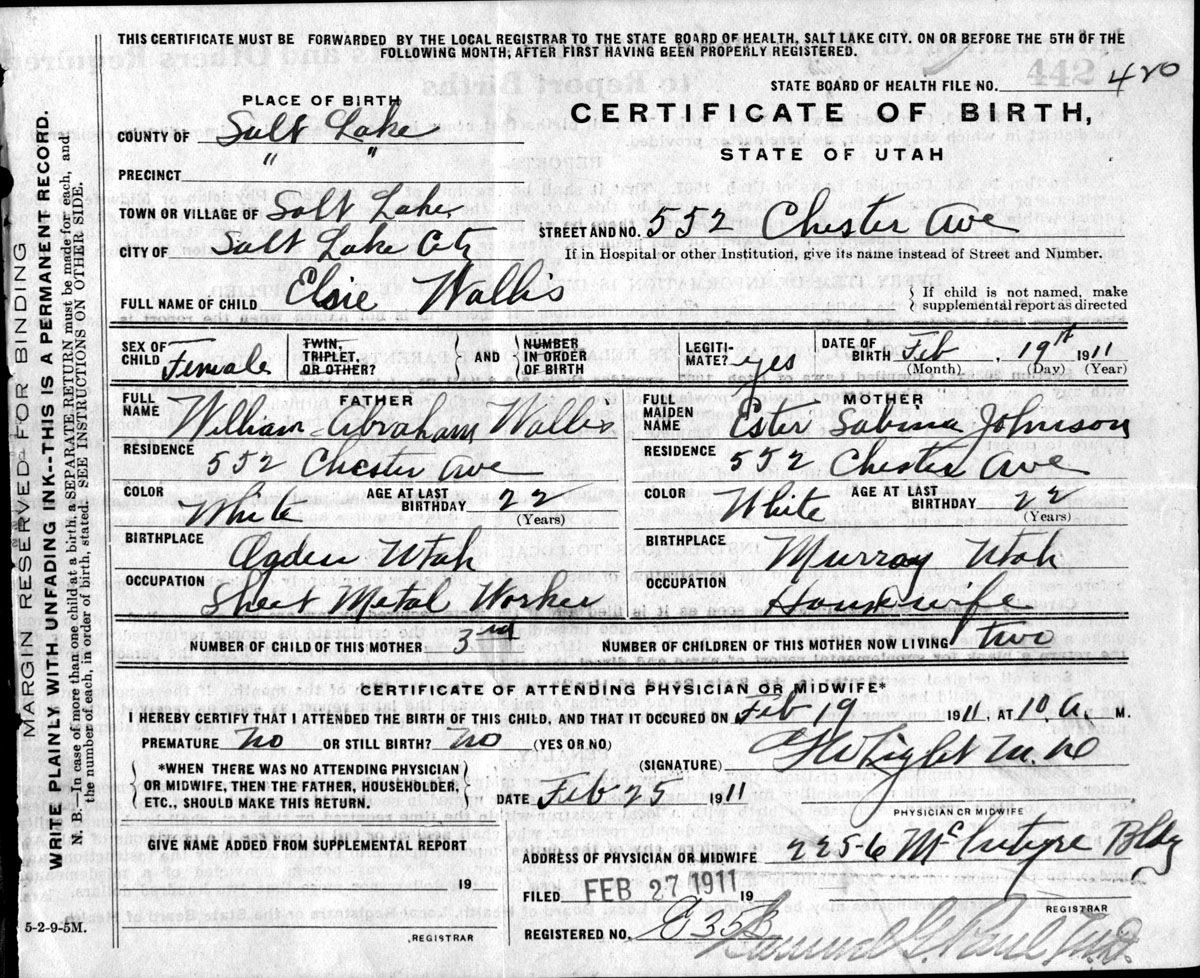 THIS CERTIFICATE MUST BE FORWARDED BY THE LOCAL REGISTRAR TO THE STATE BOARD OF HEALTH, SALT LAKE CITY, ON OR BEFORE THE 5TH OF THE
FOLLOWING MONTH, AFTER FIRST HAVING BEEN PROPERLY REGISTERED.
442
STATE BOARD OF HEALTH FILE NO. 420
PLACE OF BIRTH
CERTIFICATE OF BIRTH,
STATE OF UTAH
COUNTY OF Salt Lake
PRECINCT " "
TOWN OR VILLAGE OF Salt Lake
STREET AND NO. 552 Chester Ave
CITY OF Salt Lake City
If in Hospital or other Institution, give its name instead of Street and Number.
FULL NAME OF CHILD Elsie Wallis
If child is not named, make
supplemental report as directed
SEX OF CHILD Female
TWIN, TRIPLET, OR OTHER?
AND
NUMBER IN ORDER OF BIRTH
LEGITI-MATE? yes
DATE OF BIRTH Feb 19th 1911
(Month) (Day) (Year)
FATHER
FULL NAME William Abraham Wallis
RESIDENCE 552 Chester Ave
COLOR White AGE AT LAST BIRTHDAY 22
(Years)
BIRTHPLACE Ogden Utah
OCCUPATION Sheet Metal Worker
MOTHER
FULL MAIDEN NAME Ester Sabina Johnson
RESIDENCE 552 Chester Ave
COLOR White AGE AT LAST BIRTHDAY 22
(Years)
BIRTHPLACE Murray Utah
OCCUPATION Housewife
NUMBER OF CHILD OF THIS MOTHER 3rd
NUMBER OF CHILDREN OF THIS MOTHER NOW LIVING two
CERTIFICATE OF ATTENDING PHYSICIAN OR MIDWIFE*
I HEREBY CERTIFY THAT I ATTENDED THE BIRTH OF THIS CHILD, AND THAT IT OCCURED ON Feb 19 1911, AT 10 A. M.
PREMATURE No OR STILL BIRTH? No (YES OR NO)
*WHEN THERE WAS NO ATTENDING PHYSICIAN
OR MIDWIFE, THEN THE FATHER, HOUSEHOLDER,
ETC., SHOULD MAKE THIS RETURN.
(SIGNATURE)
DATE Feb 25 1911
PHYSICIAN OR MIDWIFE
GIVE NAME ADDED FROM SUPPLEMENTAL REPORT
19
REGISTRAR
ADDRESS OF PHYSICIAN OR MIDWIFE 225-6 McIntyre Bldg
FILED FEB 27 1911 19
REGISTRAR
REGISTERED NO. G 353
5-2-9-5M.
MARGIN RESERVED FOR BINDING
WRITE PLAINLY WITH UNFADING INK--THIS IS A PERMANENT RECORD.
N. B.—In case of more than one child at a birth, a SEPARATE RETURN must be made for each, and
the number of each, in order of birth, stated. SEE INSTRUCTIONS ON OTHER SIDE.